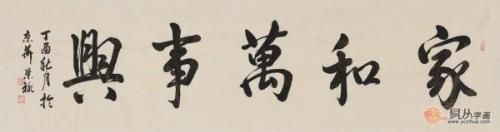 家和萬事興
丁酉秋月於
京華
易从字画
www.yczihua.com